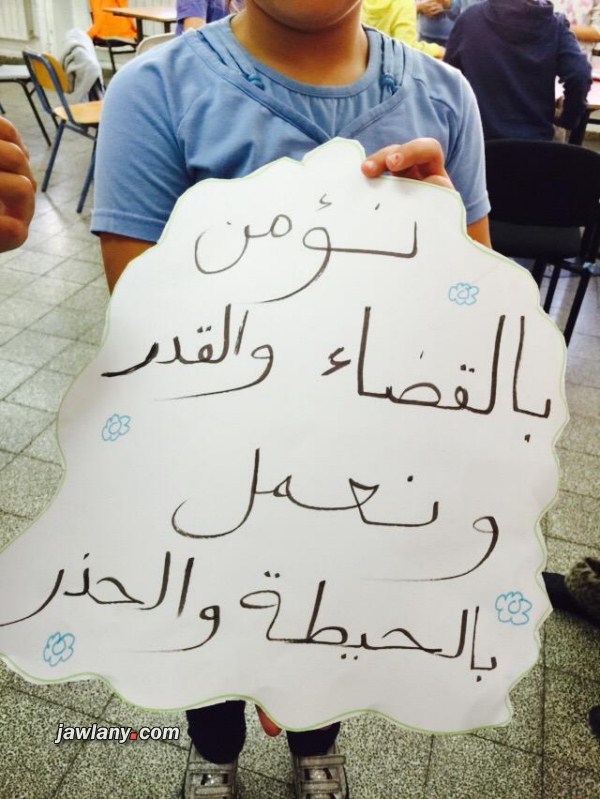 نؤمن
بالقضاء والقدر
ونعمل
بالحيطة والحذر
jawlany.com